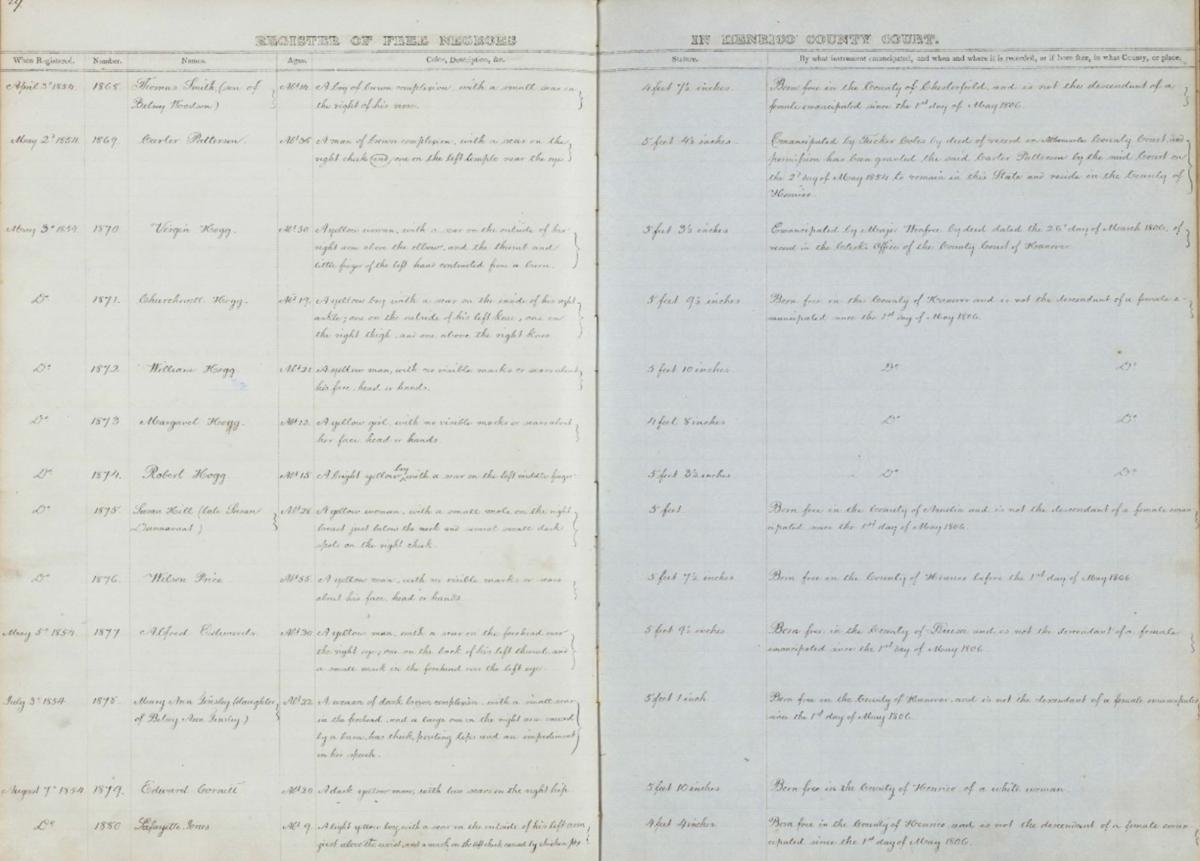 REGISTER OF FREE NEGROES IN HENRICO COUNTY COURT.
When Registered. Number. Names. Ages. Color, Description, &c. Stature. By what instrument emancipated, and when and where it is recorded, or if born free, in what County, or place.
April 3d 1854. 1868. Thomas Smith (son of Aet 14. A boy of brown complexion, with a small scar on 4 feet 7½ inches. Born free in the County of Chesterfield, and is not the descendant of a
Betsy Woodson) the right of his nose. female emancipated since the 1st day of May 1806.
May 2d 1854. 1869. Carter Patterson. Aet 36 A man of brown complexion, with a scar on the 5 feet 4½ inches. Emancipated by Tucker Coles by deed of record in Albemarle County Court and
right cheek and one on the left temple near the eye permission has been granted the said Carter Patterson by the said Court on
the 2d day of May 1854 to remain in this State and reside in the County of
Henrico.
May 3d 1854. 1870 Virgin Hogg. Aet 50 A yellow woman, with a scar on the outside of her 5 feet 3½ inches Emancipated by deed dated the 26th day of March 1806, of
right arm above the elbow, and the thumb and record in the Clerk's Office of the County Court of Hanover
little finger of the left hand contracted from a burn.
Do 1871. Churchwell Hogg. Aet 19. A yellow boy with a scar on the inside of his right 5 feet 9½ inches Born free in the County of Henrico and is not the descendant of a female e-
ankle; one on the outside of his left knee, one on mancipated since the 1st day of May 1806.
the right thigh, and one above the right knee.
Do 1872. William Hogg Aet 21. A yellow man, with no visible marks or scars about 5 feet 10 inches Do Do
his face, head or hands.
Do 1873 Margaret Hogg. Aet 12. A yellow girl, with no visible marks or scars about 4 feet 8 inches Do Do
her face, head or hands.
Do 1874. Robert Hogg Aet 15 A bright yellow boy with a scar on the left middle finger 5 feet 3½ inches Do Do
Do 1875. Susan Hill (late Susan Aet 28 A yellow woman, with a small mole on the right 5 feet Born free in the County of Amelia and is not the descendant of a female eman-
) breast just below the neck and several small dark cipated since the 1st day of May 1806.
spots on the right cheek.
Do 1876. Wilson Price Aet 55. A yellow man, with no visible marks or scars 5 feet 7½ inches Born free in the County of Henrico before the 1st day of May 1806
about his face, head or hands
May 5th 1854 1877 Alfred Edwards Aet 30 A yellow man, with a scar on the forehead over 5 feet 9½ inches Born free in the County of Louisa and is not the descendant of a female
the right eye; one on the back of his left thumb, and emancipated since the 1st day of May 1806
a small mark on the forehead over the left eye.
July 3d 1854. 1878. Mary Ann Tinsley (daughter Aet 22 A woman of dark brown complexion, with a small scar 5 feet 1 inch Born free in the County of Hanover, and is not the descendant of a female emancipated
of Betsy Ann Tinsley) in the forehead, and a large one on the right arm caused since the 1st day of May 1806.
by a burn, has thick, pouting lips and an impediment
in her speech.
August 7th 1854 1879. Edward Cornett Aet 20 A dark yellow man, with two scars in the right hip 5 feet 10 inches Born free in the County of Henrico, of a white woman
Do 1880 Lafayette Jones Aet 9. A light yellow boy, with a scar on the outside of his left arm 4 feet 4 inches Born free in the County of Henrico and is not the descendant of a female eman-
just above the wrist, and a mark on the left cheek caused by chicken pox cipated since the 1st day of May 1806.